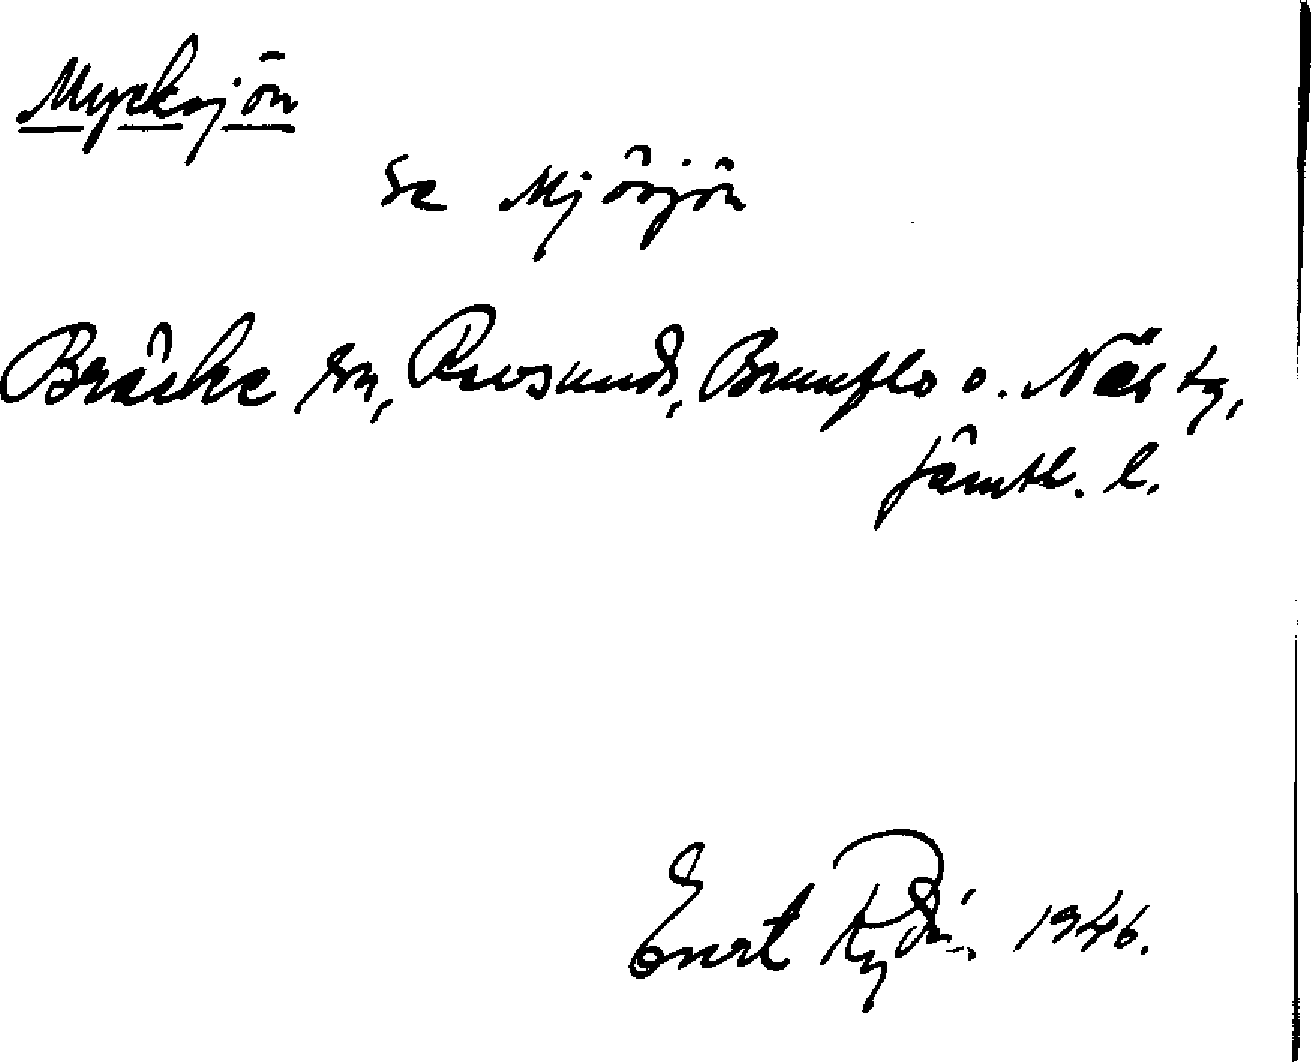 Mycksjön
se Mjösjön
Bräcke sn, Revsunds, Brunflo o. Näs tg,
Jämtl. l.
Evert Rydén 1946.